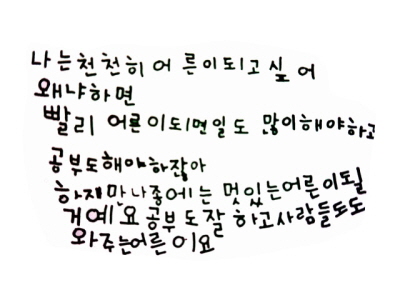 나는천천히 어른이되고싶어
왜냐하면
빨리 어른이되면일도 많이해야하고
공부도해야하잖아
하지만나중에는 멋있는어른이될
거예요 공부도잘 하고사람들도도
와주는어른이요